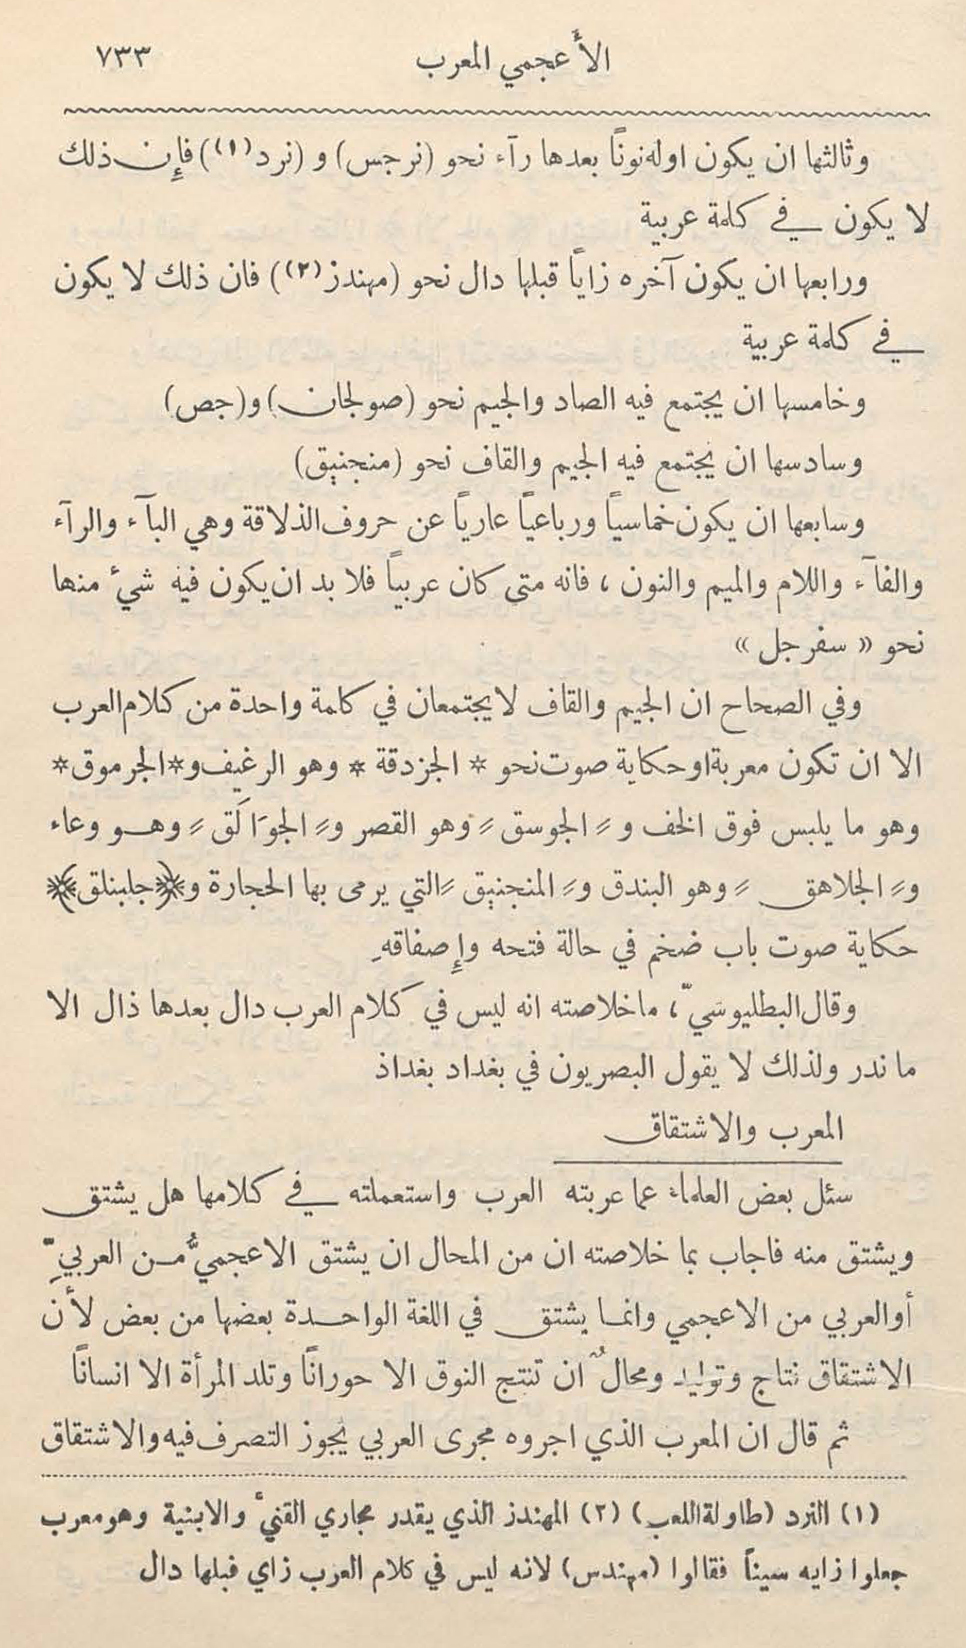 الأعجمي المعرب ٧٣٣
وثالثها ان يكون اوله نوناً بعدها رآء نحو (نرجس) و (نرد(١)) فإن ذلك
لا يكون في كلمة عربية
ورابعها ان يكون آخره زاياً قبلها دال نحو (مهندز(٢)) فان ذلك لا يكون
في كلمة عربية
وخامسها ان يجتمع فيه الصاد والجيم نحو (صولجان) و(جص)
وسادسها ان يجتمع فيه الجيم والقاف نحو (منجنيق)
وسابعها ان يكون خماسياً ورباعياً عارياً عن حروف الذلاقة وهي البآء والرآء
والفآء واللام والميم والنون ، فانه متى كان عربياً فلا بد ان يكون فيه شيء منها
نحو « سفرجل »
وفي الصحاح ان الجيم والقاف لا يجتمعان في كلمة واحدة من كلام العرب
الا ان تكون معربة او حكاية صوت نحو * الجزدقة * وهو الرغيف و* الجرموق *
وهو ما يلبس فوق الخف و = الجوسق = وهو القصر و= الجوَالَق = وهو وعاء
و= الجلاهق = وهو البندق و= المنجنيق = التي يرمى بها الحجارة و﴿جلبنلق﴾
حكاية صوت باب ضخم في حالة فتحه وإصفاقهِ
وقال البطليوسيّ ، ما خلاصته انه ليس في كلام العرب دال بعدها ذال الا
ما ندر ولذلك لا يقول البصريون في بغداد بغداذ
المعرب والاشتقاق
سئل بعض العلماء عما عربته العرب واستعملته في كلامها هل يشتق
ويشتق منه فاجاب بما خلاصته ان من المحال ان يشتق الاعجميُّ من العربيِّ
أو العربي من الاعجمي وانما يشتق في اللغة الواحدة بعضها من بعض لأن
الاشتقاق نتاج وتوليد ومحالٌ ان تنتج النوق الا حوراناً وتلد المرأة الا انساناً
ثم قال ان المعرب الذي اجروه مجرى العربي يجوز التصرف فيه والاشتقاق
(١) النرد (طاولة اللعب) (٢) المهندز الذي يقدر مجاري القنيّ والابنية وهو معرب
جعلوا زايه سيناً فقالوا (مهندس) لانه ليس في كلام العرب زاي قبلها دال